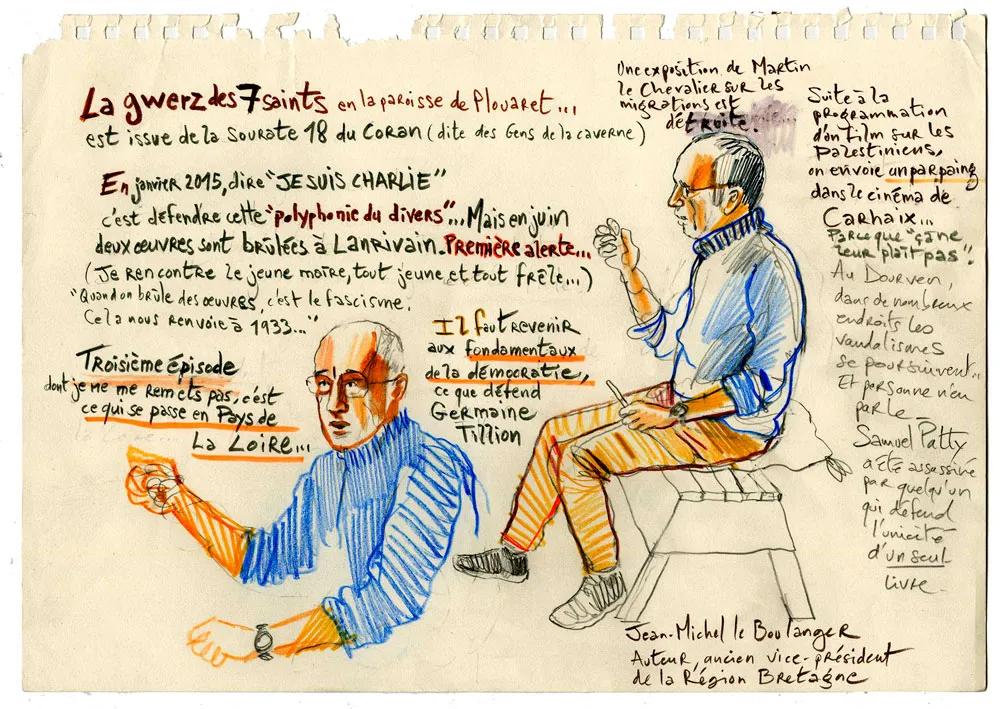 La gwerz des 7 saints en la paroisse de Plouaret...
est issue de la sourate 18 du Coran (dite des Gens de la caverne)
En janvier 2015, dire "JE SUIS CHARLIE"
c'est défendre cette "polyphonie du divers"... Mais en juin
deux œuvres sont brûlées à Lanrivain. Première alerte...
(Je rencontre le jeune maire, tout jeune et tout frêle...)
"Quand on brûle des œuvres, c'est le fascisme.
Cela nous renvoie à 1933..."
Troisième épisode
dont je ne me remets pas, c'est
ce qui se passe en Pays de
La Loire...
Il faut revenir
aux fondamentaux
de la démocratie,
ce que défend
Germaine
Tillion
Une exposition de Martin
le Chevalier sur les
migrations est
détruite.
Suite à la
programmation
d'un film sur les
Palestiniens,
on envoie un parpaing
dans le cinéma de
Carhaix...
Parce que "ça ne
leur plaît pas".
Au Dourven,
dans de nombreux
endroits les
vandalismes
se poursuivent..
Et personne n'en
parle_
Samuel Patty
a été assassiné
par quelqu'un
qui défend
l'unicité
d'un seul
livre_
Jean-Michel le Boulanger
Auteur, ancien vice-président
de la Région Bretagne